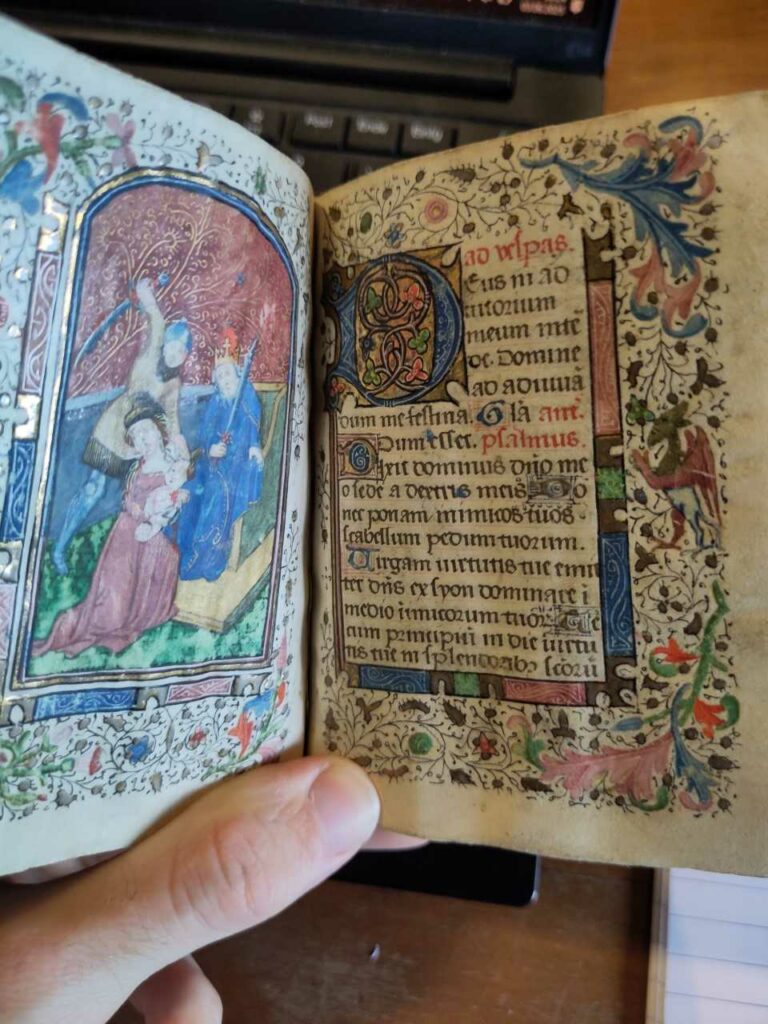 ad vesp̃as.
Deus in ad
iutorium
meum intẽ
de. Domine
ad adiuuã
dum me festina. Gl̃a añt.
Dum esset. psalmus.
Dixit dominus dño me
o sede a dextris meis Do
nec ponam inimicos tuos
scabellum pedum tuorum.
Virgam uirtutis tue emit
tet dñs ex syon dominare ĩ
medio ĩimicorum tuor̃ Te
cum principiũ in die uirtu
tis tue in splendorib₃ sc̃orũ